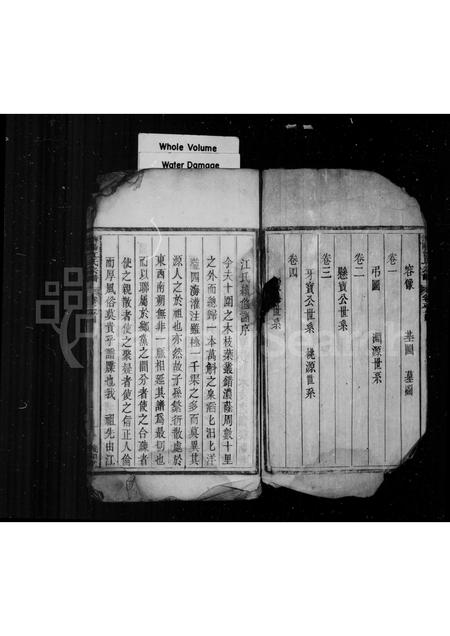 Whole Volume
Water Damage
卷一
容像 墓圖 墓圖
弔圖 淵源世系
卷二
懸寶公世系
卷三
牙寶公世系 桃源世系
卷四
世系
江氏續修譜序
今夫十圍之木枝葉叢錯濃蔭周數十里
之外而總歸一本萬斛之泉滔汩汩洋
四海灌注雖極一千派之多而莫異其
源人之於祖也亦然故子孫繁衍散處於
東西南朔無非一脈相延其譜為最切也
而以聯屬於鄉黨之間分者使之合疎者
使之親散者使之聚暌者使之信正人倫
而厚風俗莫貴乎譜牒也我 祖先由江